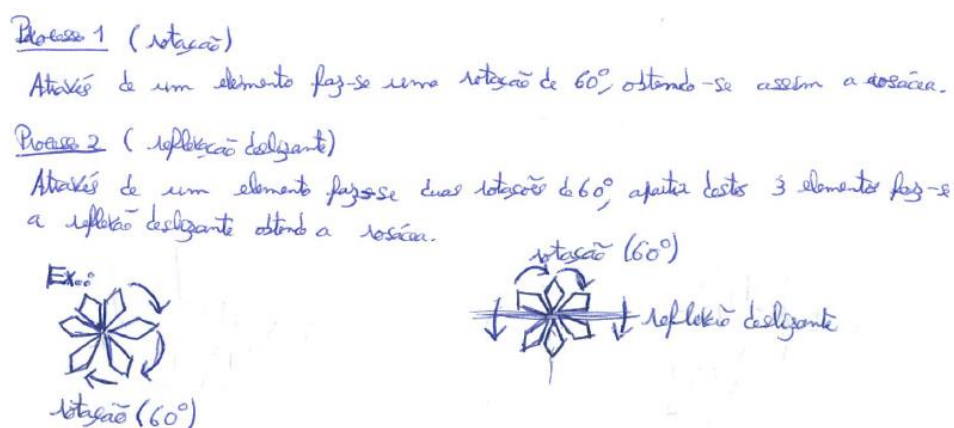 Processo 1 (rotação)
Através de um elemento faz-se uma rotação de 60°, obtendo-se assim a rosácea.
Processo 2 (reflexão deslizante)
Através de um elemento faz-se duas rotações de 60°, apartir destes 3 elementos faz-se
a reflexão deslizante obtendo a rosácea.
Ex.:
rotação (60°)
rotação (60°)
reflexão deslizante